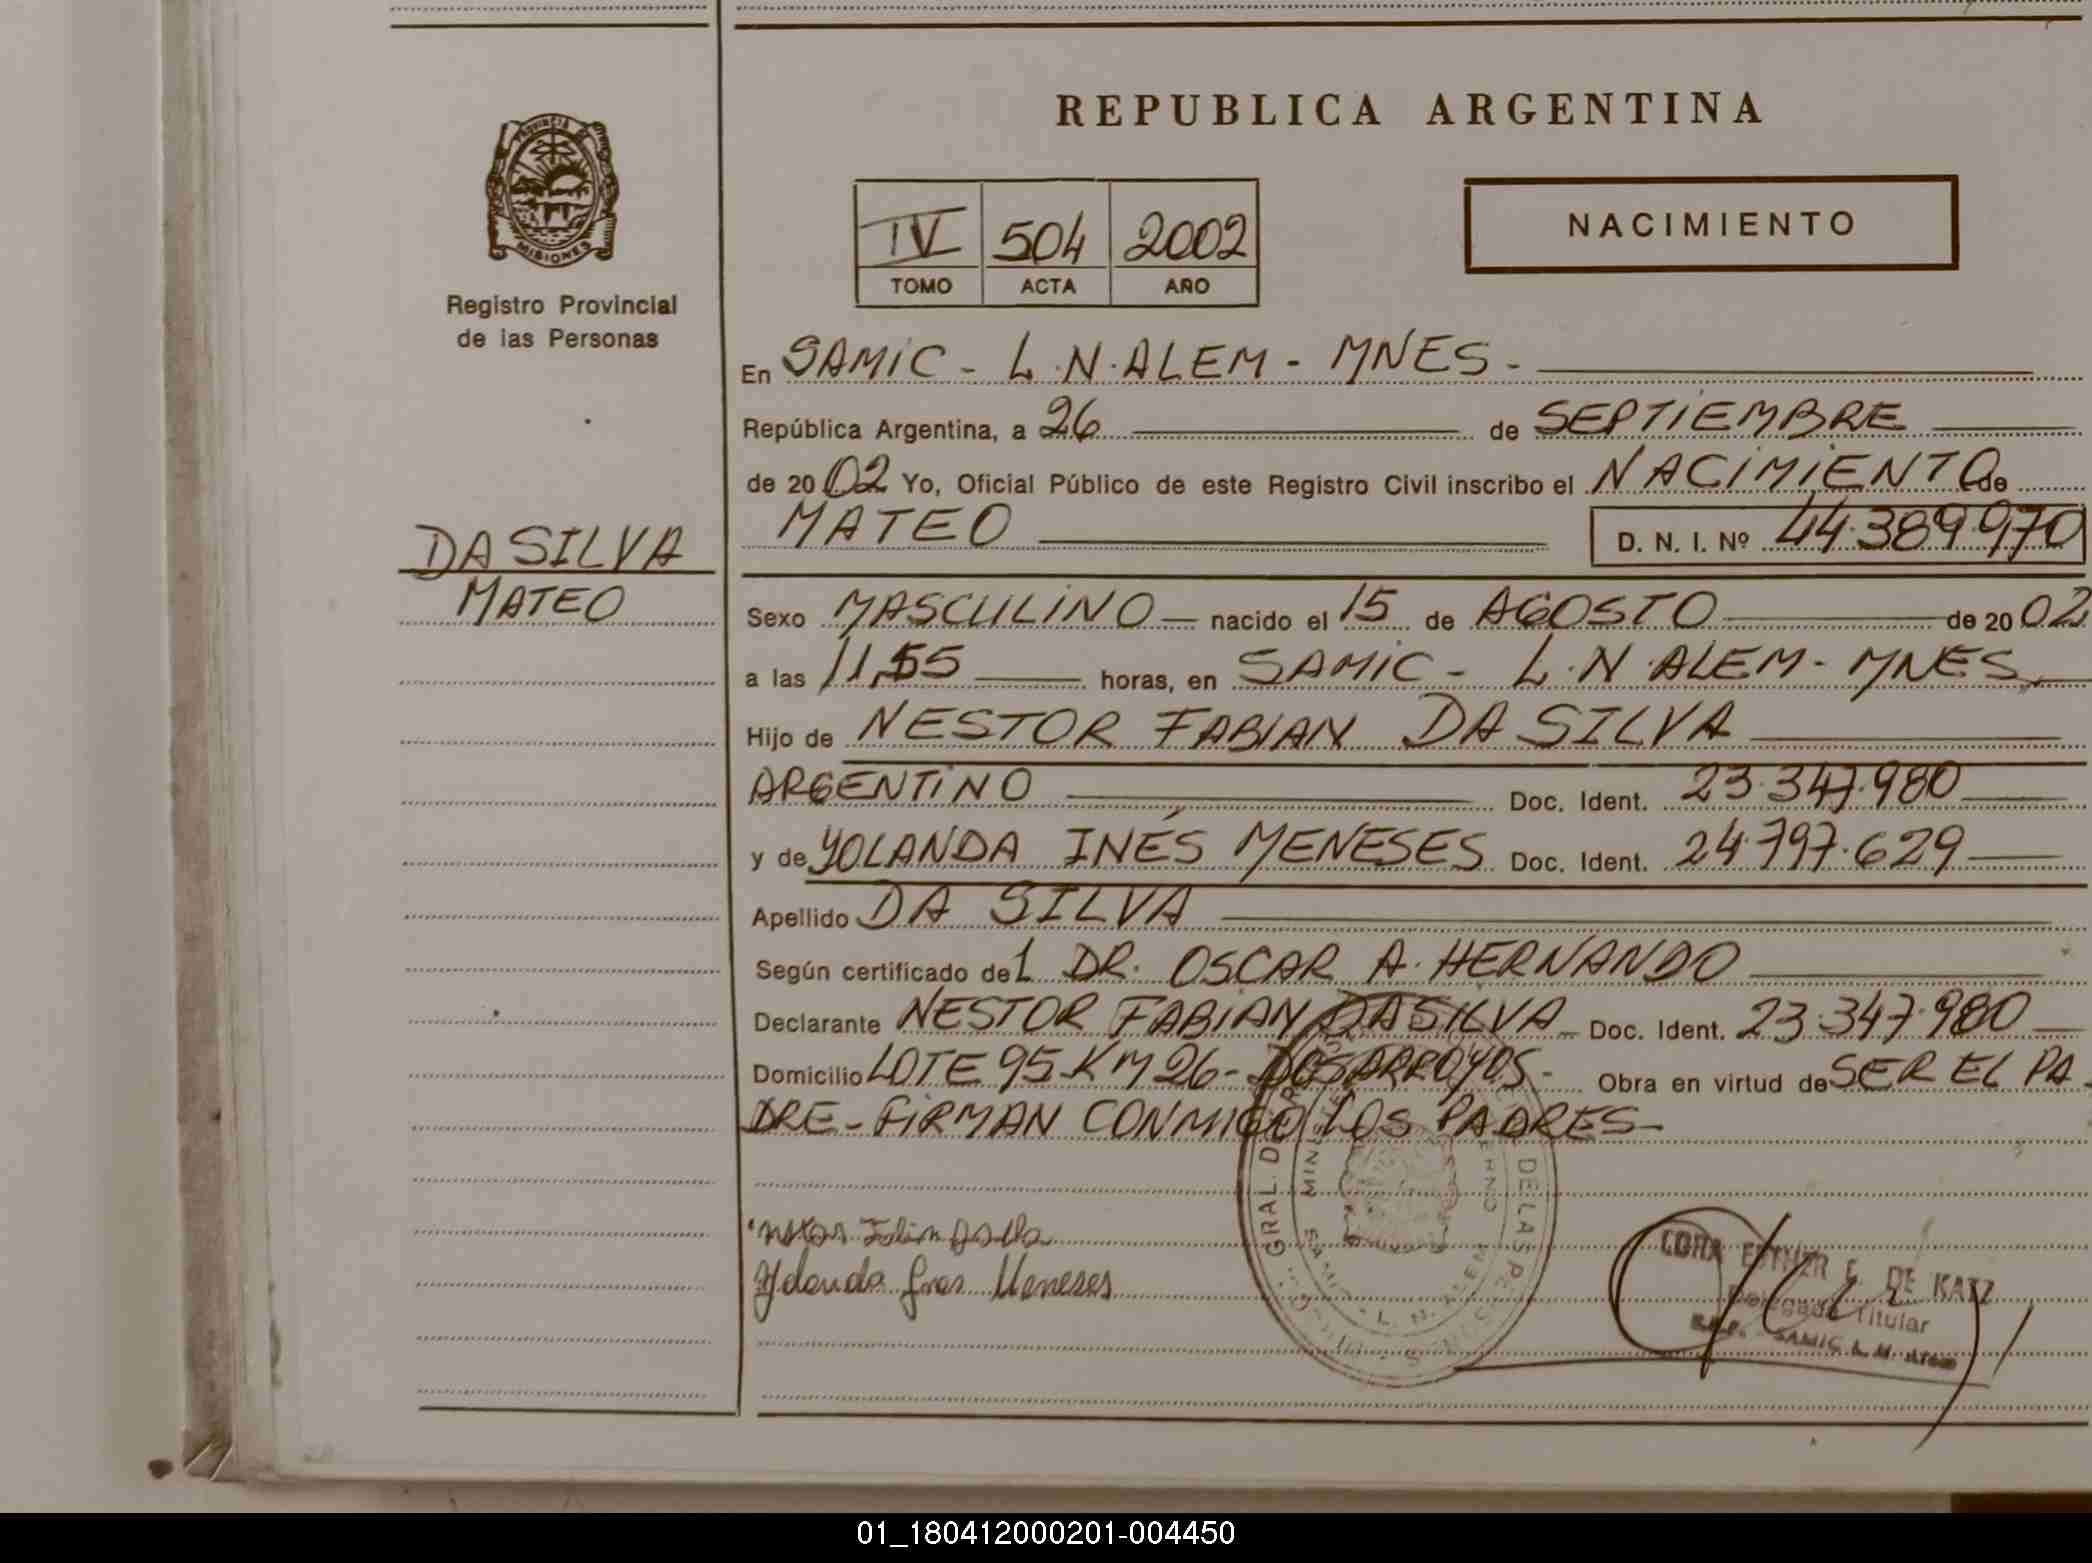 REPUBLICA ARGENTINA
PROVINCIA DE
MISIONES
Registro Provincial
de las Personas
IV 504 2002
TOMO ACTA AÑO
NACIMIENTO
En SAMIC - L.N.ALEM - MNES -
República Argentina, a 26 de SEPTIEMBRE
de 2002 Yo, Oficial Público de este Registro Civil inscribo el NACIMIENTO de
MATEO D. N. I. Nº 44.389.970
DA SILVA
MATEO
Sexo MASCULINO nacido el 15 de AGOSTO de 2002
a las 11,55 horas, en SAMIC - L.N.ALEM - MNES
Hijo de NESTOR FABIAN DA SILVA
ARGENTINO Doc. Ident. 23.347.980
y de YOLANDA INÉS MENESES Doc. Ident. 24.797.629
Apellido DA SILVA
Según certificado del DR. OSCAR A. HERNANDO
Declarante NESTOR FABIAN DA SILVA Doc. Ident. 23.347.980
Domicilio LOTE 95 KM 26 - DOS ARROYOS - Obra en virtud de SER EL PA
DRE - FIRMAN CONMIGO LOS PADRES -
Yolanda Ines Meneses
GRAL. DE LAS PERSONAS
SAMIC - L. N. ALEM
CORA ESTHER E. DE KATZ
Delegada Titular
R.P.P. - SAMIC L. N. Alem
01_180412000201-004450